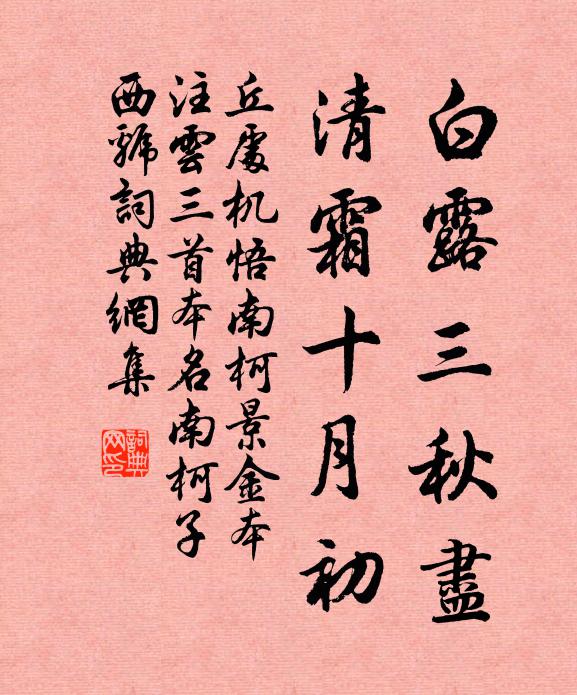 白露三秋盡
清霜十月初
丘處机悟南柯景金本
注雲三首本名南柯子
西虢詞典網集
詞典網印